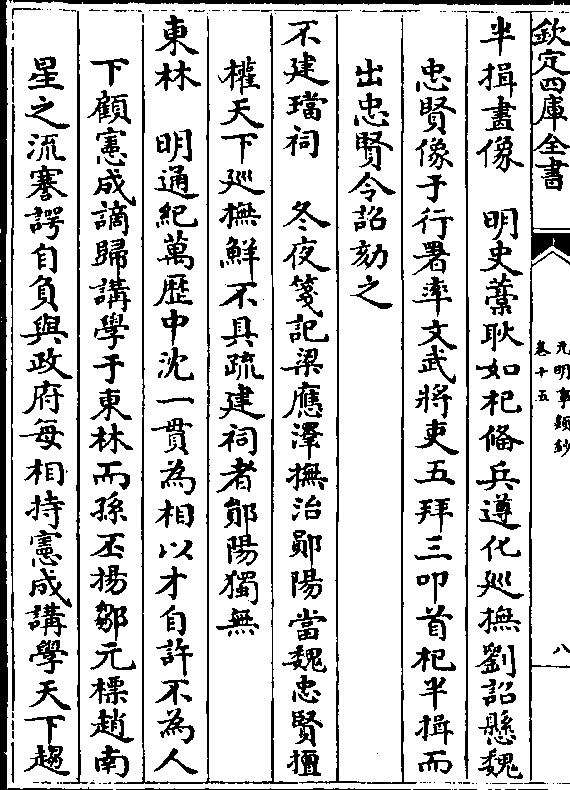 欽定四庫全書
元明事類鈔
卷十五
八
半揖畫像　明史藳耿如杞備兵遵化廵撫劉詔懸魏
忠賢像于行署率文武將吏五拜三叩首杞半揖而
出忠賢令詔劾之
不建璫祠　冬夜箋記梁應澤撫治鄖陽當魏忠賢擅
權天下廵撫鮮不具疏建祠者鄖陽獨無
東林　明通紀萬歷中沈一貫為相以才自許不為人
下顧憲成謫歸講學于東林而孫丕揚鄒元標趙南
星之流謇諤自負與政府每相持憲成講學天下趨